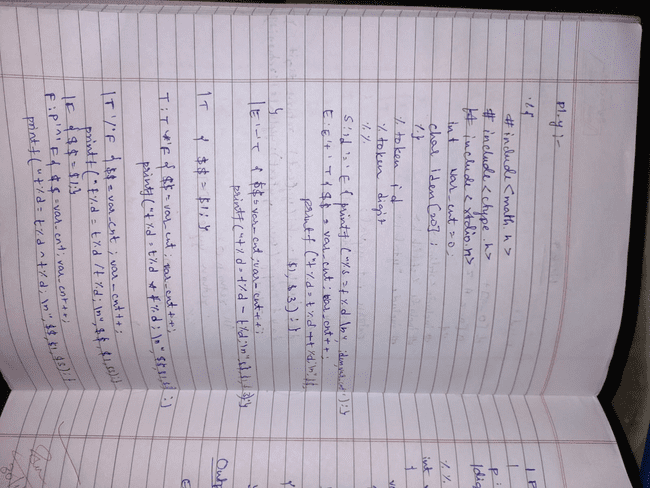 p1.y :-
%{
# include <math.h>
# include <ctype.h>
# include <stdio.h>
int var_cnt = 0;
char iden[20];
%}
% token id
% token digit
%%
S : id '=' E { printf (" %s = t%d \n", iden, var_cnt
E : E '+' T { $$ = var_cnt; var_cnt++;
printf ("t%d = t%d + t%d; \n",
$1, $3); }
}
| E '-' T { $$ = var_cnt; var_cnt++;
printf ("t%d = t%d - t%d; \n", $$, $1, $3);}
| T { $$ = $1; }
T : T '*' F { $$ = var_cnt; var_cnt++;
printf ("t%d = t%d * t%d; \n", $$, $1,
| T '/' F { $$ = var_cnt; var_cnt++;
printf ("t%d = t%d / t%d; \n", $$, $1, $3);}
| F { $$ = $1; }
F : P '^' F { $$ = var_cnt; var_cnt++;
printf ("t%d = t%d ^ t%d; \n", $$, $1, $3); }
| P
P :
| dig
%%
int
}
Outp